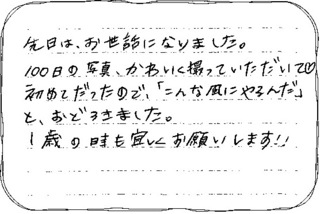 先日は、お世話になりました。
100日の写真、かわいく撮っていただいて♡
初めてだったので、「こんな風にやるんだ」
と、おどろきました。
1歳の時も宜しくお願いします!!